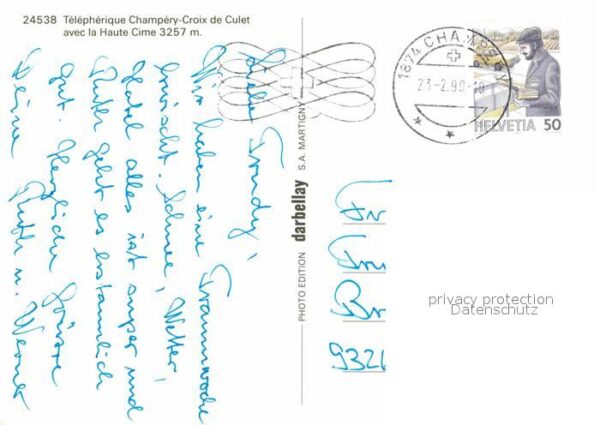 24538 Téléphérique Champéry-Croix de Culet
avec la Haute Cime 3257 m.
Liebe Trudy,
Wir haben eine Traumwoche
erwischt. Schnee, Wetter,
Hotel alles ist super und
Ruth geht es erstaunlich
gut. Herzliche Grüsse
Deine Ruth u. Werner
PHOTO EDITION darbellay S.A. MARTIGNY
1874 CHAMPÉRY
23-2.90-
HELVETIA 50
Br
9321
privacy protection
Datenschutz